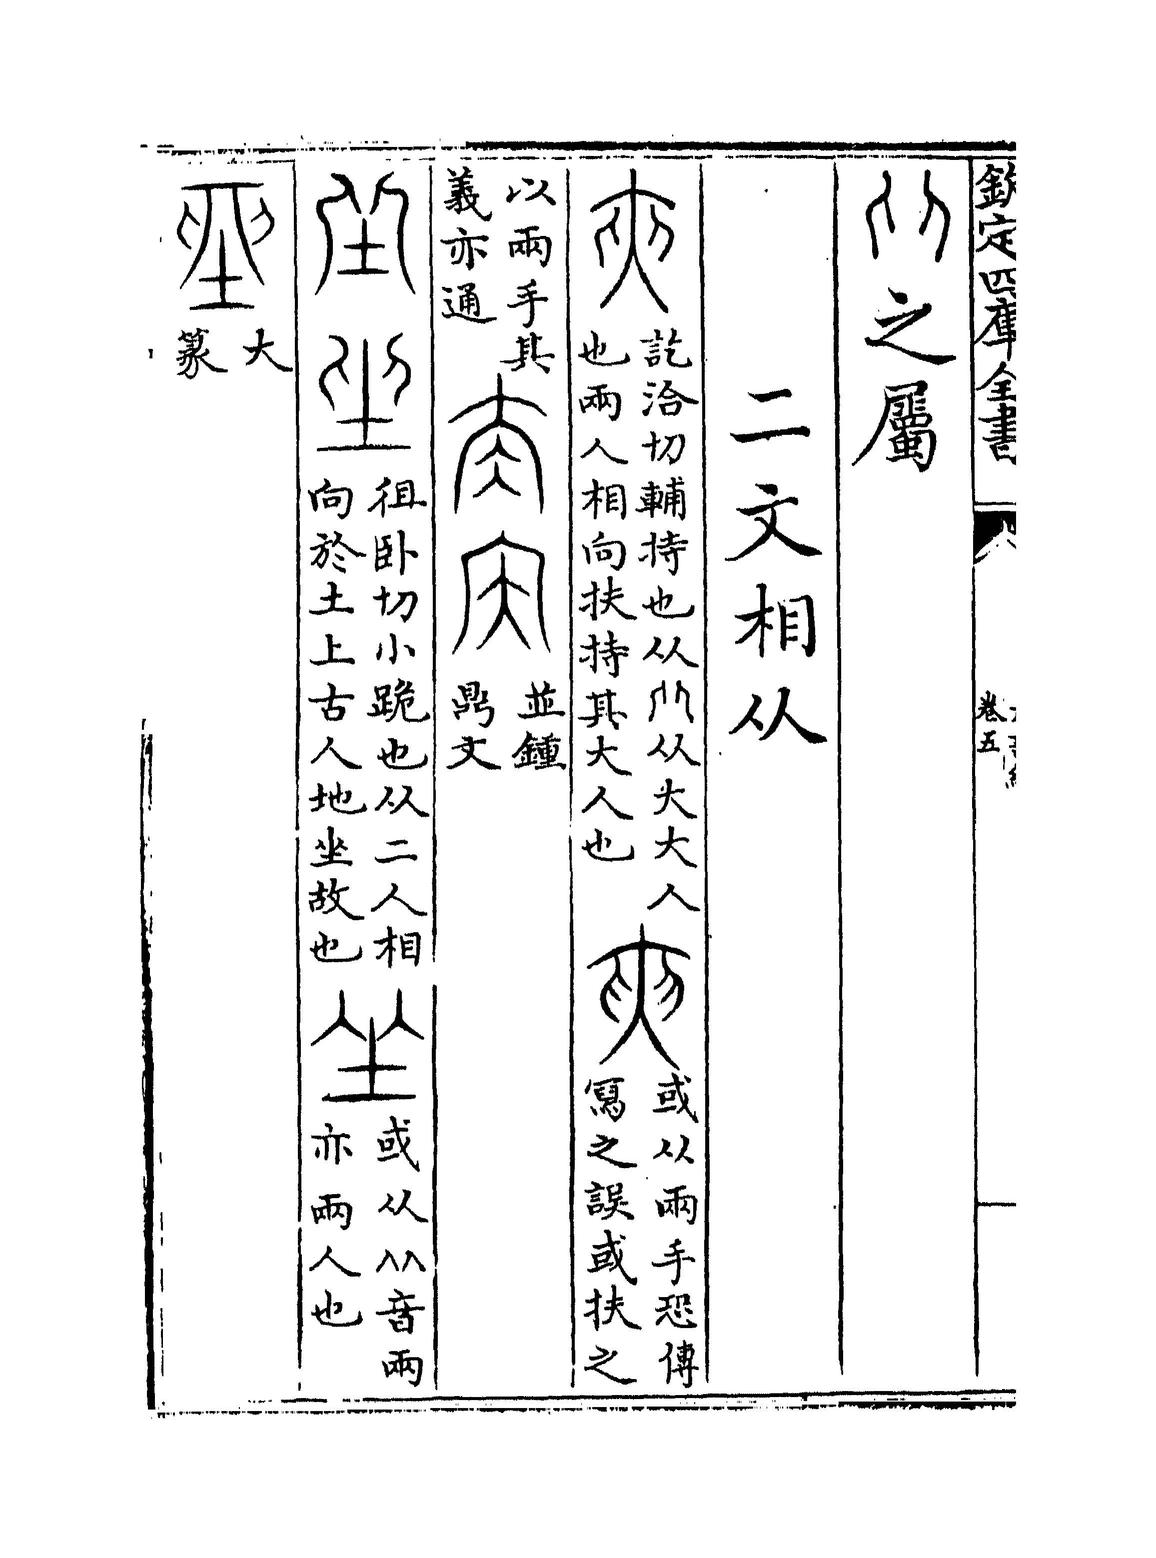 欽定四庫全書
卷五
之屬
二文相从
訖洽切輔持也从从大大人
也兩人相向扶持其大人也
或从兩手恐傳
寫之誤或扶之
以兩手其
義亦通
並鍾
鼎文
徂卧切小跪也从二人相
向於土上古人地坐故也
或从从音兩
亦兩人也
大
篆